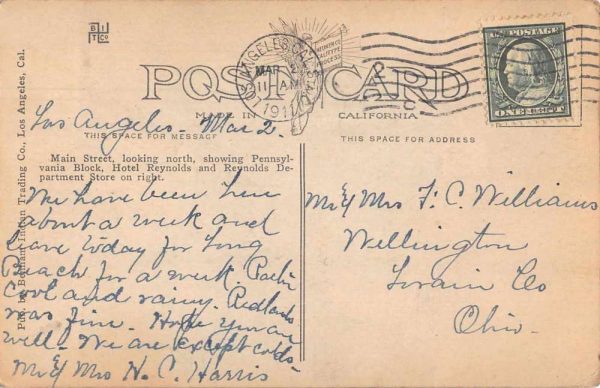 BI
TCo
POST CARD
LOS ANGELES, CAL. STA. C
MAR 2
11 AM
1911
U.S. POSTAGE
ONE CENT
MADE IN CALIFORNIA
THIS SPACE FOR MESSAGE
THIS SPACE FOR ADDRESS
Pub. by Benham Indian Trading Co., Los Angeles, Cal.
Main Street, looking north, showing Pennsyl-
vania Block, Hotel Reynolds and Reynolds De-
partment Store on right.
Los Angeles - Mar 2.
We have been here
about a week and
leave today for Long
Beach for a week.
cool and rainy. Redlands
was fine. Hope you are
well - We are except colds -
Mr & Mrs H. C. Harris
Mr & Mrs F. C. Williams
Wellington
Lorain Co
Ohio.